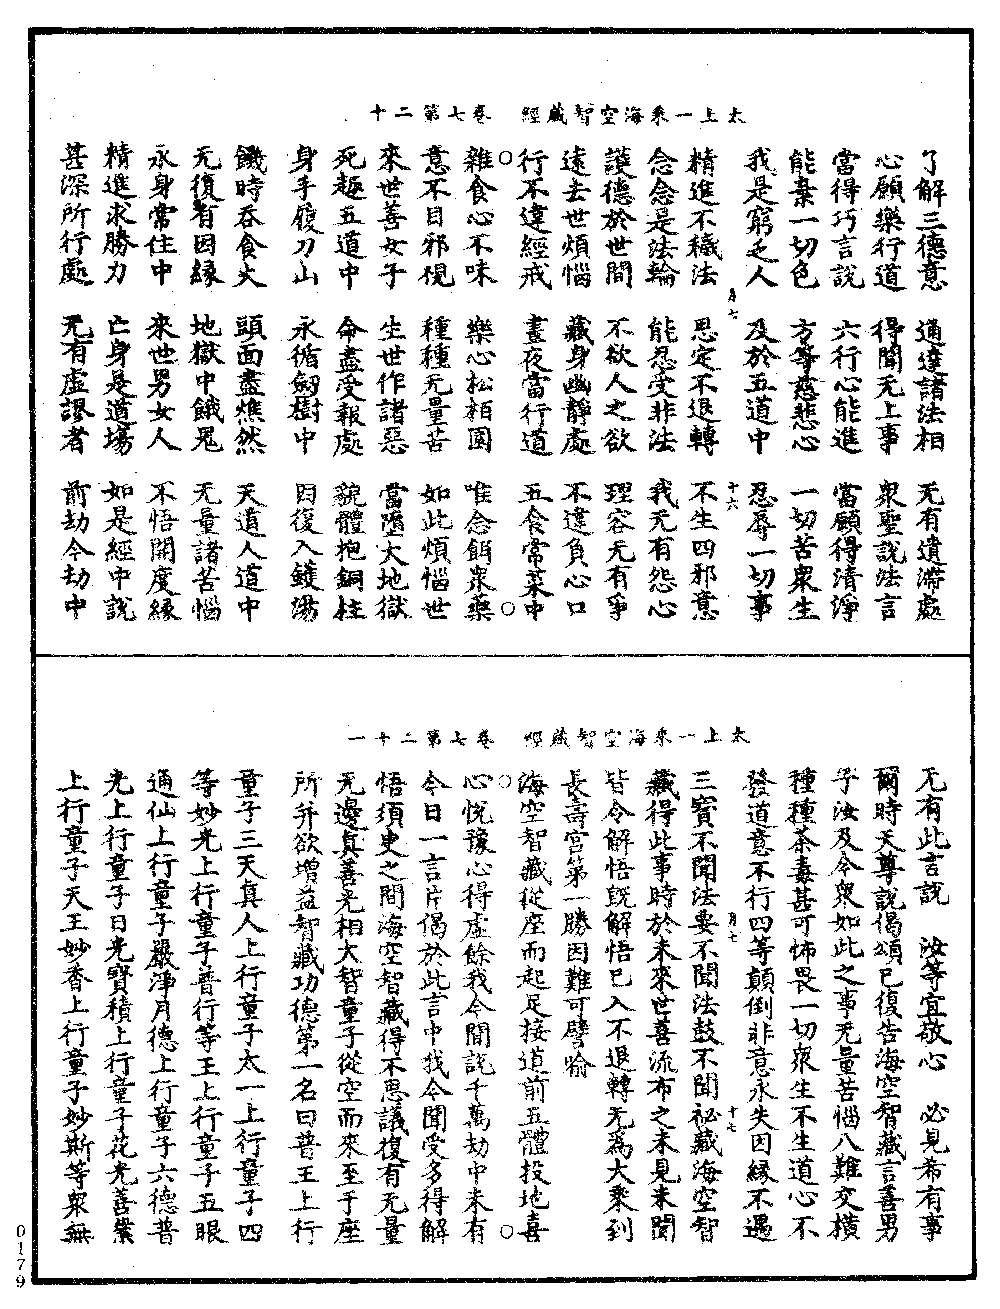 太上一乘海空智藏經　卷七第二十
了解三德意　通達諸法相　无有遺滯處
心願樂行道　得聞无上事　衆聖說法言
當得巧言說　六行心能進　當願得清淨
能棄一切色　方等慈悲心　一切苦衆生
我是窮乏人　及於五道中　忍辱一切事
月七　十六
精進不穢法　思定不退轉　不生四邪意
念念是法輪　能忍受非法　我无有怨心
護德於世間　不欲人之欲　理容无有爭
遠去世煩惱　藏身幽靜處　不違負心口
行不違經戒　晝夜當行道　五食常菜中
雜食心不味　樂心松柏園　唯念餌衆藥
意不目邪視　種種无量苦　如此煩惱世
來世善女子　生世作諸惡　當墮大地獄
死趣五道中　命盡受報處　貌體抱銅柱
身手履刀山　永循劒樹中　因復入鑊湯
饑時吞食火　頭面盡燋然　天道人道中
无復有因緣　地獄中餓鬼　无量諸苦惱
永身常住中　來世男女人　不悟開度緣
精進求勝力　亡身是道場　如是經中說
甚深所行處　无有虛謬者　前劫今劫中
太上一乘海空智藏經　卷七第二十一
无有此言說　汝等宜敬心　必見希有事
爾時天尊說偈頌已復告海空智藏言善男
子汝及今衆如此之事无量苦惱八難交橫
種種荼毒甚可怖畏一切衆生不生道心不
發道意不行四等顛倒非意永失因緣不遇
月七　十七
三寶不聞法要不聞法鼓不聞祕藏海空智
藏得此事時於未來世善流布之未見未聞
皆令解悟旣解悟已入不退轉无爲大乘到
長壽宮第一勝因難可譬喻
海空智藏從座而起足接道前五體投地喜
心悅豫心得虛餘我今聞說千萬劫中未有
今日一言片偈於此言中我今聞受多得解
悟須臾之間海空智藏得不思議復有无量
无邊真善光相大智童子從空而來至于座
所幷欲增益智藏功德第一名曰普王上行
童子三天真人上行童子太一上行童子四
等妙光上行童子普行等王上行童子五眼
通仙上行童子嚴淨月德上行童子六德普
光上行童子日光寶積上行童子花光善業
上行童子天王妙香上行童子妙斯等衆無
0179